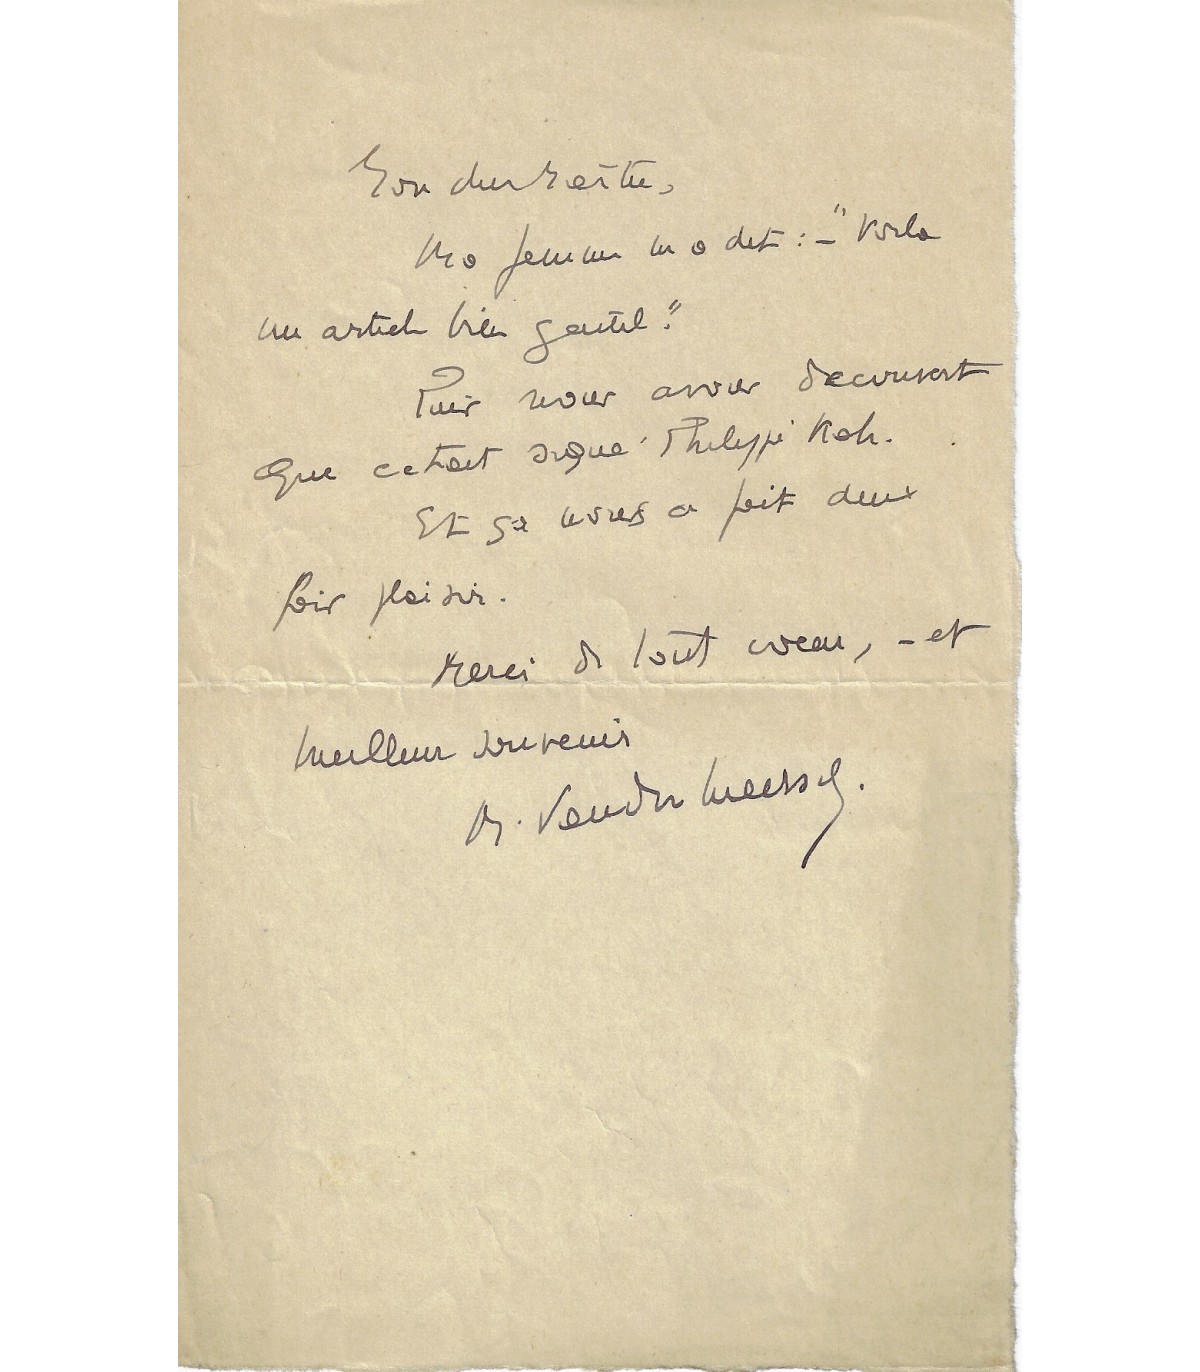 Mon cher Maître,
Ma femme m'a dit : – "Voilà
un article bien gentil."
Puis nous avons découvert
que c'était signé Philippe Kah.
Et ça nous a fait deux
fois plaisir.
Merci de tout coeur, – et
meilleur souvenir
M. Van der Meersch.